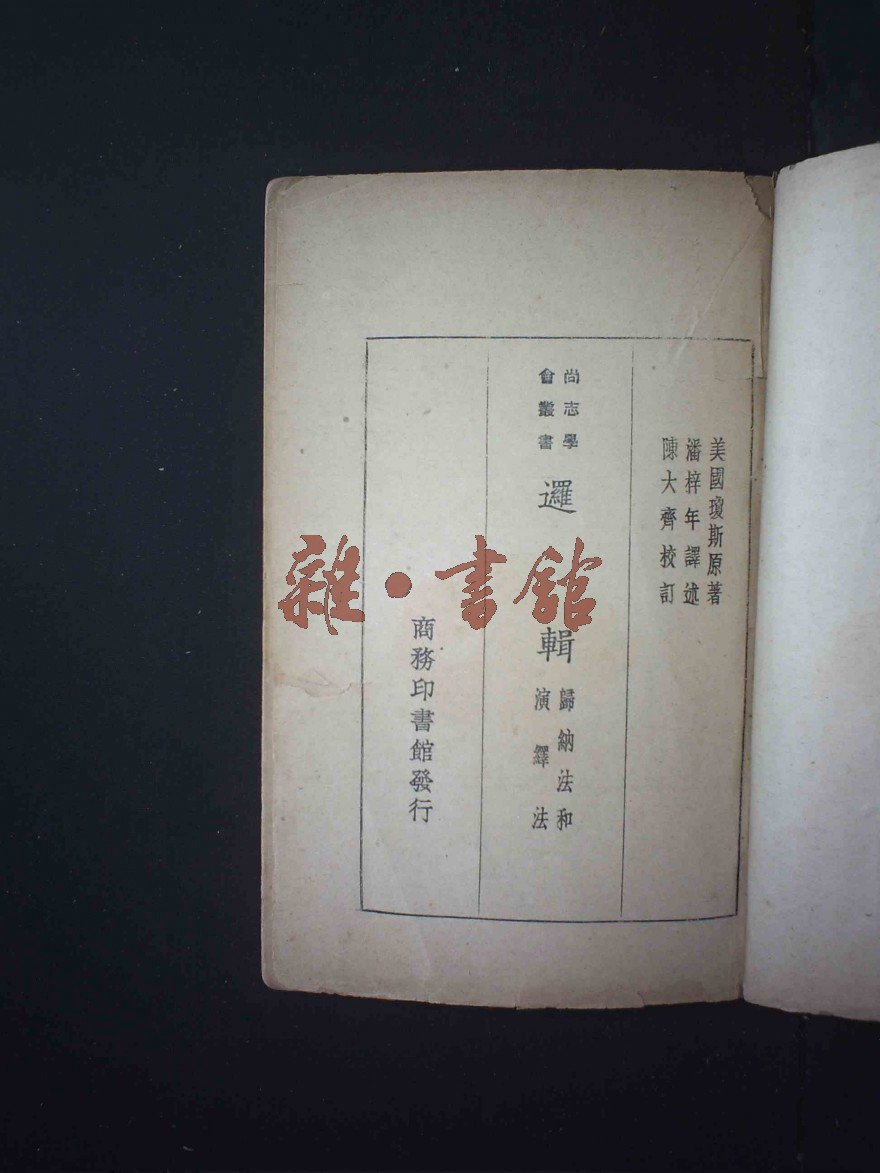 美國瓊斯原著
潘梓年譯述
陳大齊校訂
尚志學
會叢書
邏輯
歸納法和
演繹法
商務印書館發行
雜·書館